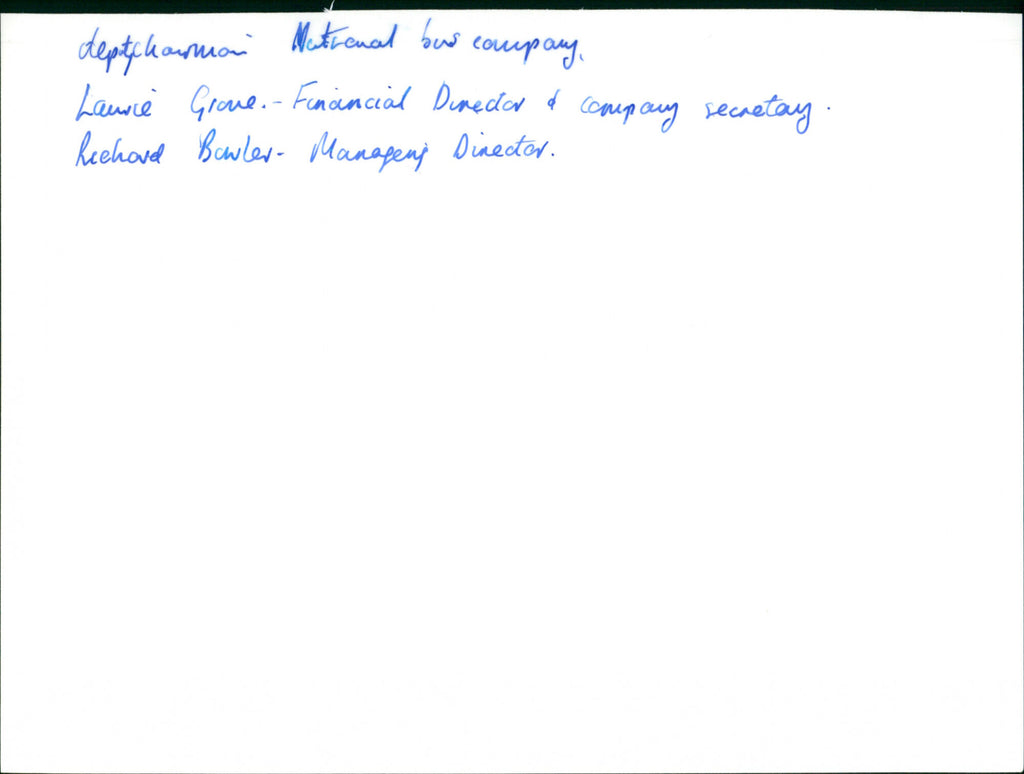 deptychairman National bus company.
Laurie Grove. - Financial Director & company secretary.
Richard Bowler - Managing Director.